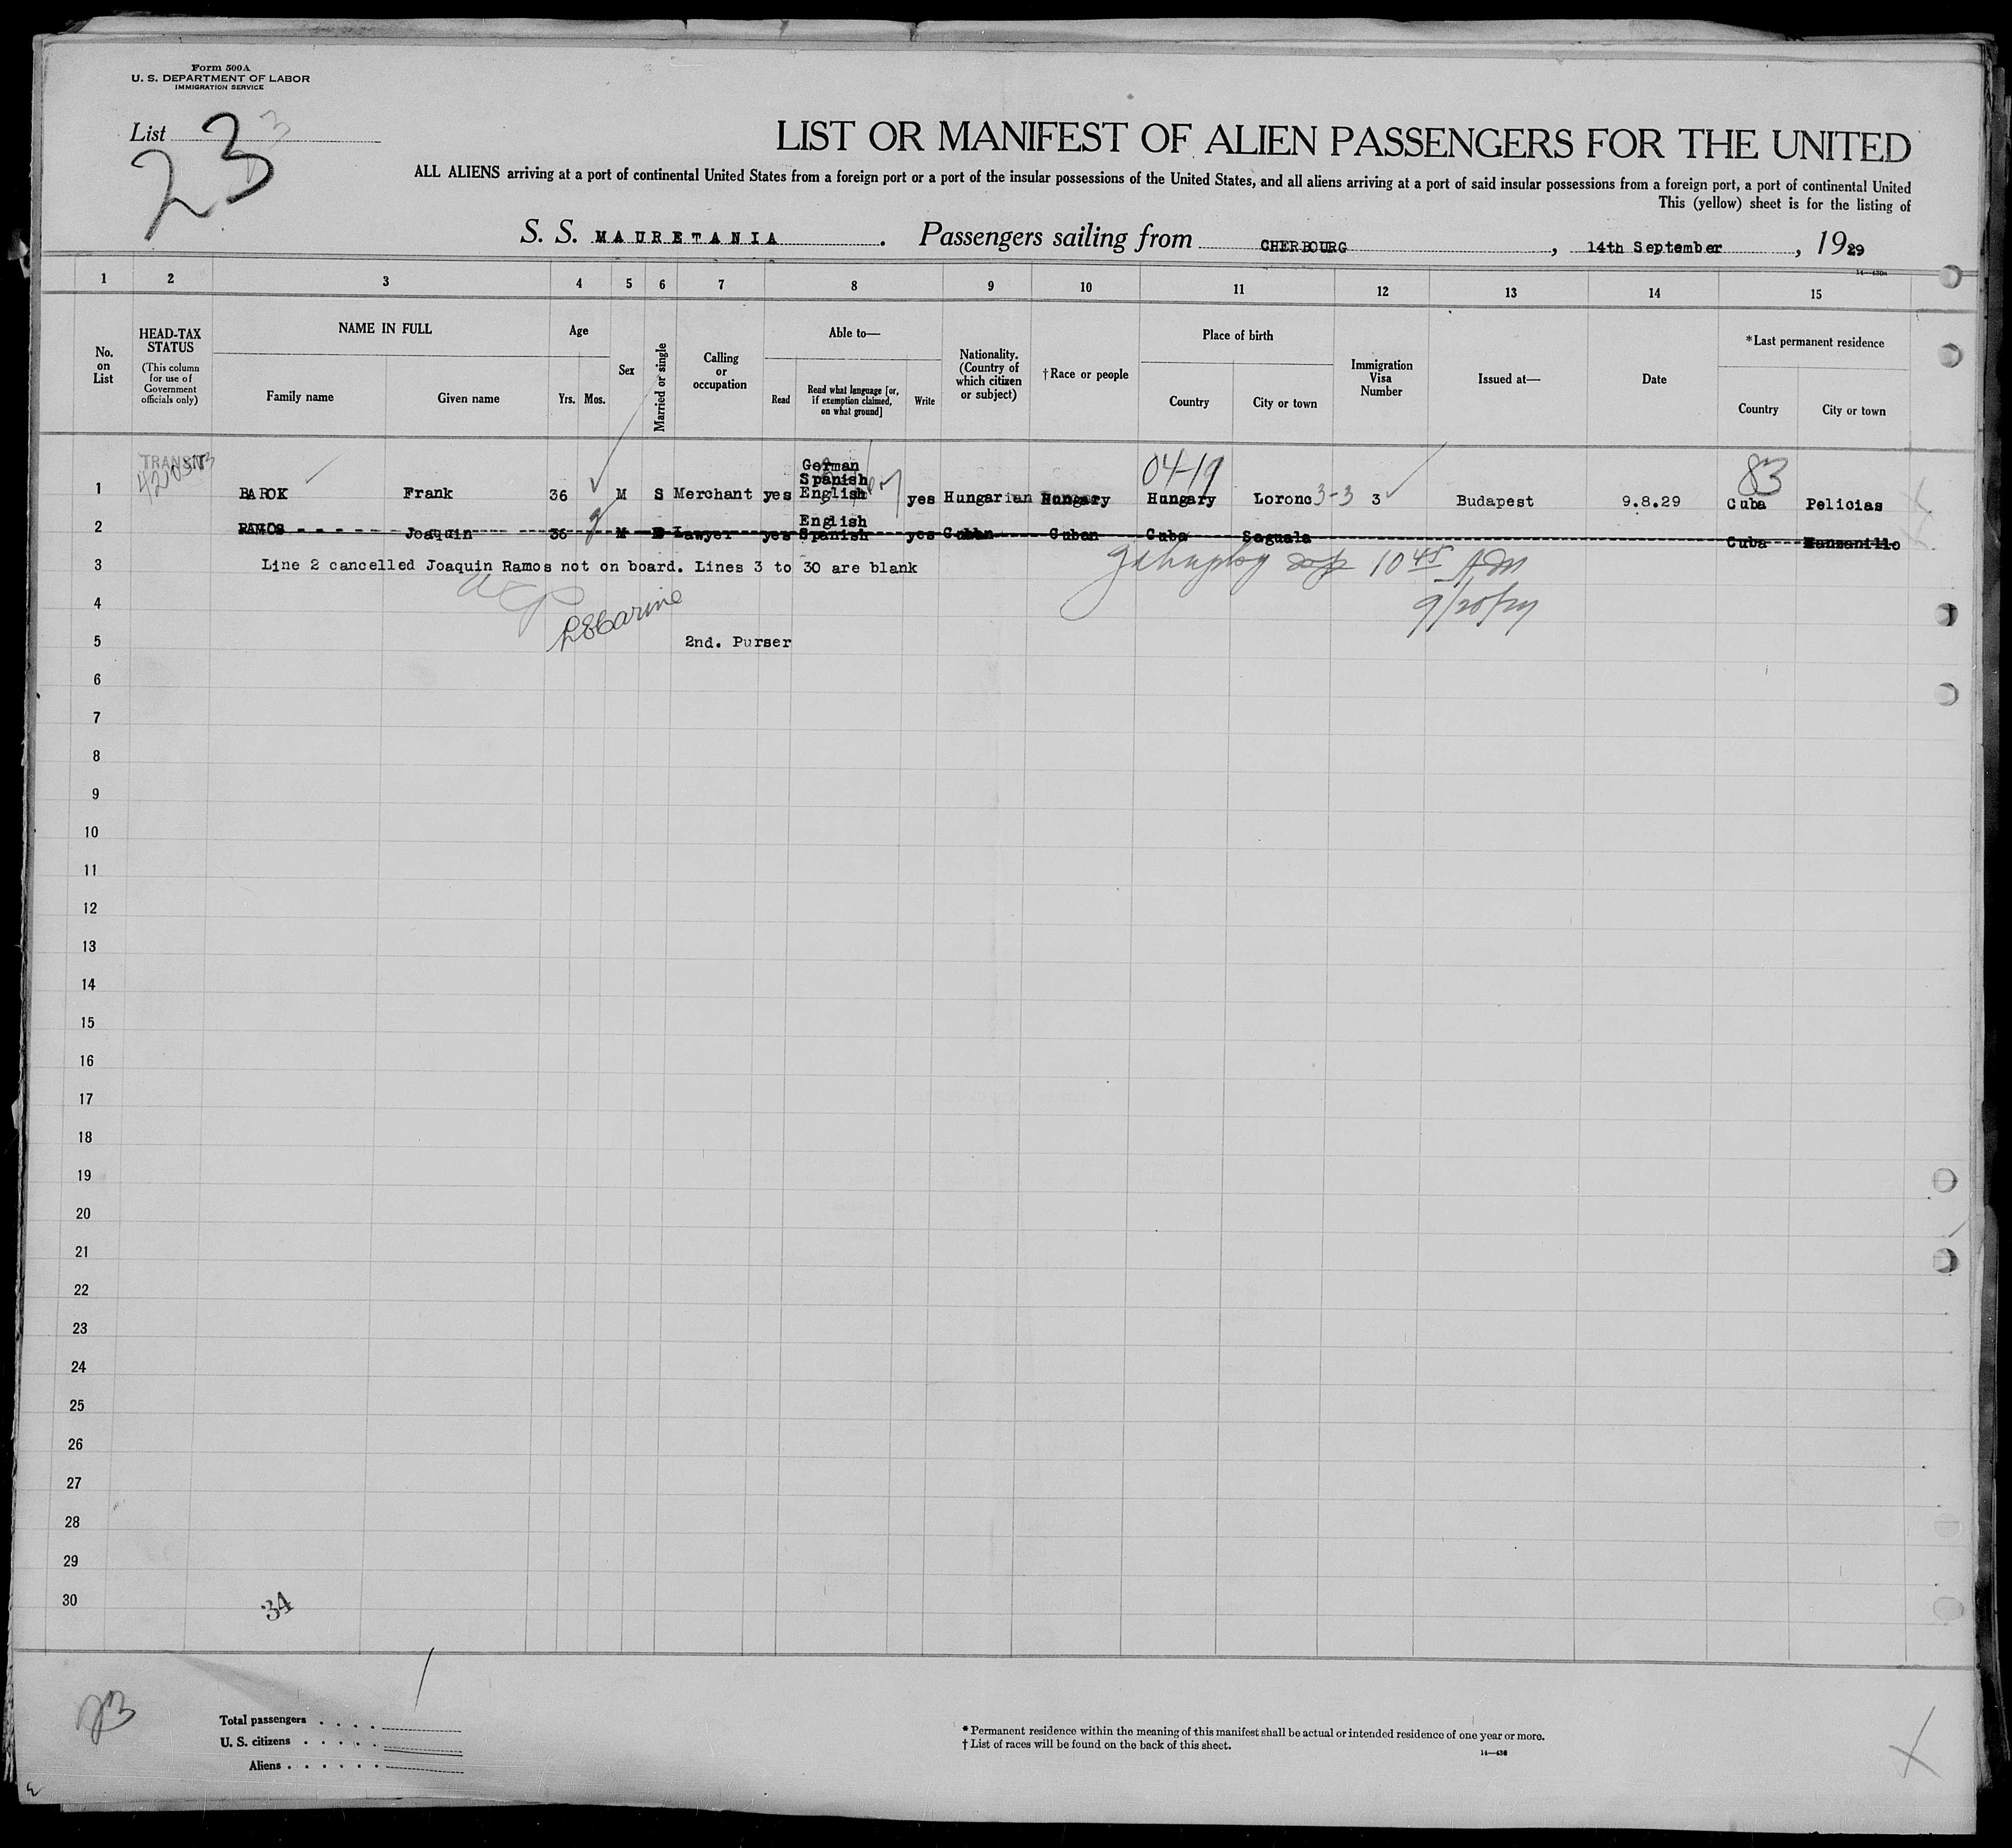 Form 500A
U. S. DEPARTMENT OF LABOR
IMMIGRATION SERVICE
List 3
23
LIST OR MANIFEST OF ALIEN PASSENGERS FOR THE UNITED
ALL ALIENS arriving at a port of continental United States from a foreign port or a port of the insular possessions of the United States, and all aliens arriving at a port of said insular possessions from a foreign port, a port of continental United
This (yellow) sheet is for the listing of
S. S. MAURETANIA . Passengers sailing from CHERBOURG , 14th September , 1929
1 2 3 4 5 6 7 8 9 10 11 12 13 14 15
No. on List
HEAD-TAX STATUS (This column for use of Government officials only)
NAME IN FULL
Family name Given name
Age
Yrs. Mos.
Sex
Married or single
Calling or occupation
Able to—
Read Read what language [or, if exemption claimed, on what ground] Write
Nationality. (Country of which citizen or subject)
† Race or people
Place of birth
Country City or town
Immigration Visa Number
Issued at—
Date
*Last permanent residence
Country City or town
TRANSIT
04-19 83
1 BAROK Frank 36 M S Merchant yes German Spanish English yes Hungarian Hungary Hungary Loronc 3-3 3 Budapest 9.8.29 Cuba Pelicias
2 RAMOS Joaquin 36 M Lawyer yes English Spanish yes Cuban Cuban Cuba Saguala Cuba Manzanillo
3 Line 2 cancelled Joaquin Ramos not on board. Lines 3 to 30 are blank
10 45 AM
4
5 2nd. Purser
6
7
8
9
10
11
12
13
14
15
16
17
18
19
20
21
22
23
24
25
26
27
28
29
30
34
23
Total passengers . . . .
U. S. citizens . . . . .
Aliens . . . . . .
* Permanent residence within the meaning of this manifest shall be actual or intended residence of one year or more.
† List of races will be found on the back of this sheet.
14—430